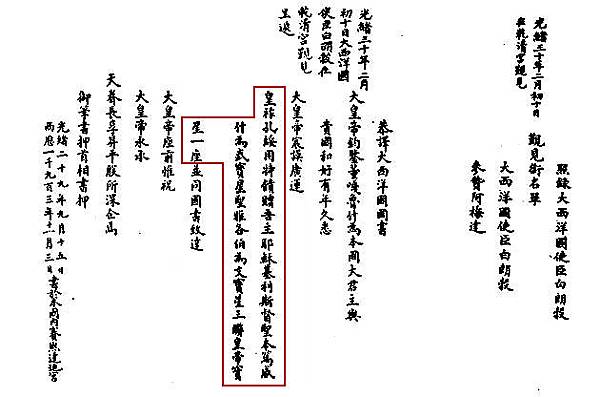 照錄大西洋國使臣白朗穀
覲見銜名單
光緒三十年二月初十日
在乾清宮覲見
大西洋國使臣白朗穀
參贊阿梅達
恭譯大西洋國國書
光緒三十年二月
初十日大西洋國
使臣白朗穀在
乾清宮覲見
呈遞
大皇帝鈞鑒 魯什為本國大君主與
貴國和好有年久志
大皇帝宸謨廣運
皇祚孔綏用特饋贈吾主耶穌基利斯督聖本篤威
什為武寶星聖雅各伯為文寶星三聯皇帝寶
星一座並同國書致達
大皇帝座前惟祝
大皇帝永承
天眷長享昇平朕所深企焉
御筆書押首相書押
光緒二十九年九月十五日
西歷一千九百三年十一月三日書於本國內賽 達 宮